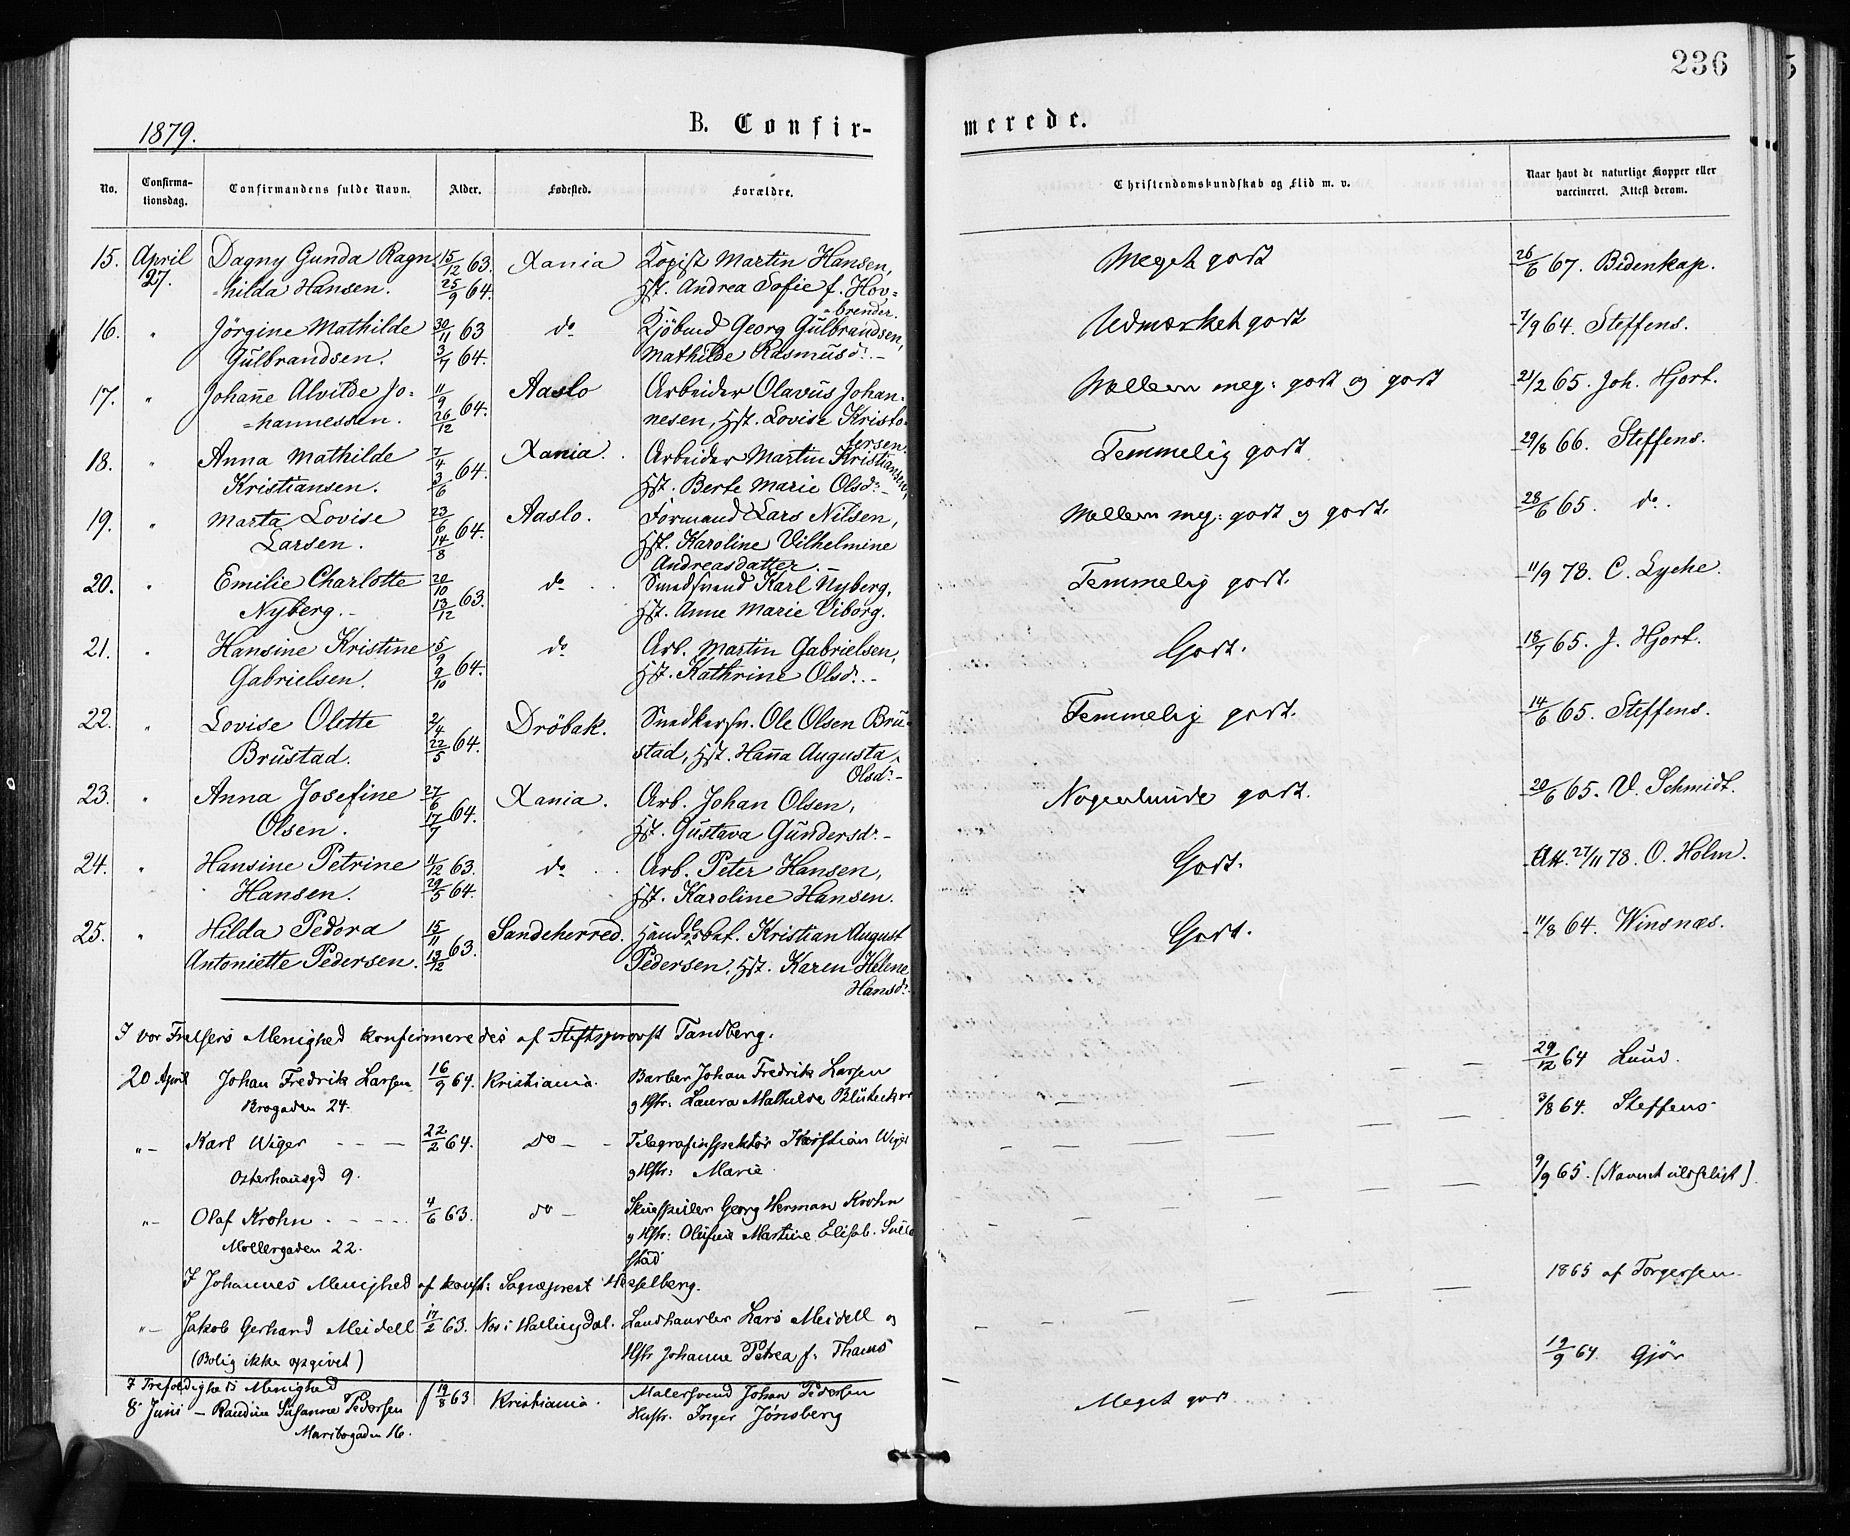 236
1879. B. Confirmerede.
No. Confirma-tionsdag. Confirmandens fulde Navn. Alder. Fødested. Forældre. Christendomskundskab og Flid m. v. Naar havt de naturlige Kopper eller vaccineret. Attest derom.
15. April Dagny Gunda Ragn 15/12 63. Xania Kopist Martin Hansen, Meget godt 26/6 67. Bidenkap.
27. =hilda Hansen. 25/9 64. Hst. Andrea Sofie f. Hov=
=brender.
16. " Jörgine Mathilde 30/11 63 do Kjöbmd Georg Gulbrandsen, Udmærket godt 7/9 64. Steffens.
Gulbrandsen. 3/7 64. Mathilde Rasmusdr. –
17. " Johanne Alvilde Jo= 11/9 64. Aaslo Arbeider Olavus Johan- Mellem meg: godt og godt 21/2 65. Joh. Hjort.
=hannessen. 26/12 nesen, Hst. Lovise Kristo-
fersen.
18. " Anna Mathilde 7/4 64. Xania. Arbeider Martin Kristiansen, Temmelig godt 29/8 66. Steffens.
Kristiansen. 3/6 Hst. Berte Marie Olsdr. –
19. " Marta Lovise 23/6 64. Aaslo. Formand Lars Nilsen, Mellem meg: godt og godt. 28/6 65. do.
Larsen. 14/8 Hst. Karoline Vilhelmine
Andreasdatter. –
20. " Emilie Charlotte 20/10 63. do Smedsvend Karl Nyberg, Temmelig godt. 11/9 78. C. Lyche.
Nyberg. – 13/12 Hst. Anne Marie Viborg.
21. " Hansine Kristine 5/9 64. do Arb. Martin Gabrielsen, Godt. 18/7 65. J. Hjort.
Gabrielsen. 9/10 Hst. Kathrine Olsdr. –
22. " Lovise Olette 2/4 64. Dröbak. Snedkersv. Ole Olsen Bru- Temmelig godt. 14/6 65. Steffens.
Brustad. 22/5 stad, Hst. Hanna Augusta
Olsdr. –
23. " Anna Josefine 27/6 64. Xania. Arb. Johan Olsen, Nogenlunde godt. 20/6 65. V. Schmidt.
Olsen. 17/7 Hst. Gustava Gundersdr. –
24. " Hansine Petrine 4/12 63. do Arb. Peter Hansen, Godt. Att. 27/11 78. O. Holm.
Hansen. 29/5 64. Hst. Karoline Hansen.
25. " Hilda Pedora 15/11 63. Sandeherred. Kristian August Godt. 11/8 64. Winsnæs.
Antoniette Pedersen. 13/12 Pedersen, Hst. Karen Helene
Hansdr.
I vor Frelsers Menighed konfirmeredes af Stiftsprovst Tandberg.
20 April Johan Fredrik Larsen 16/9 64. Kristiania. Barber Johan Fredrik Larsen 29/12 64 Lund.
Brogaden 24. og Hstr: Laura Mathilde
"– Karl Wiger 22/2 64. do – Telegrafinspektør Kristian Wiger 3/8 64. Steffens
Osterhausgd 9. og Hstr: Marie
"– Olaf Krohn 4/6 63. do – Skuespiller Georg Herman Krohn 9/9 65. (Navnet ulæseligt)
Møllergaden 22. og Hstr: Olufine Martine Elisab.
stad
I Johannes Menighed af konst: Sogneprest Hesselberg.
"– Jakob Gerhard Meidell 17/2 63. Nes i Hallingdal. Landhandler Lars Meidell og 1865 af Torgersen
(Bolig ikke opgivet) Hstr Johanne Petrea f. Thams 19/9 64. Gjør
I Trefoldigheds Menighed
8 Juni – Randine Susanne Pedersen f 19/8 63 Kristiania. Malersvend Johan Pedersen Meget godt
Maribogaden 16. Hustr. Inger Jønsberg